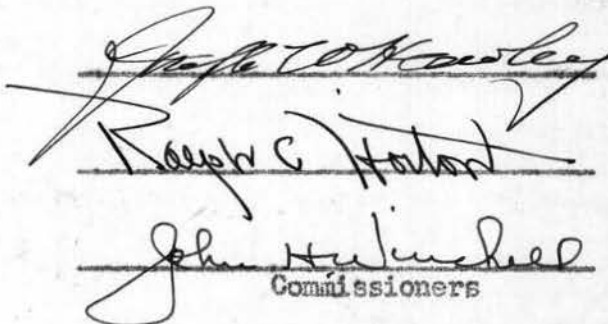 Joseph W Hawley
Ralph C Horton
John H Winchell
Commissioners